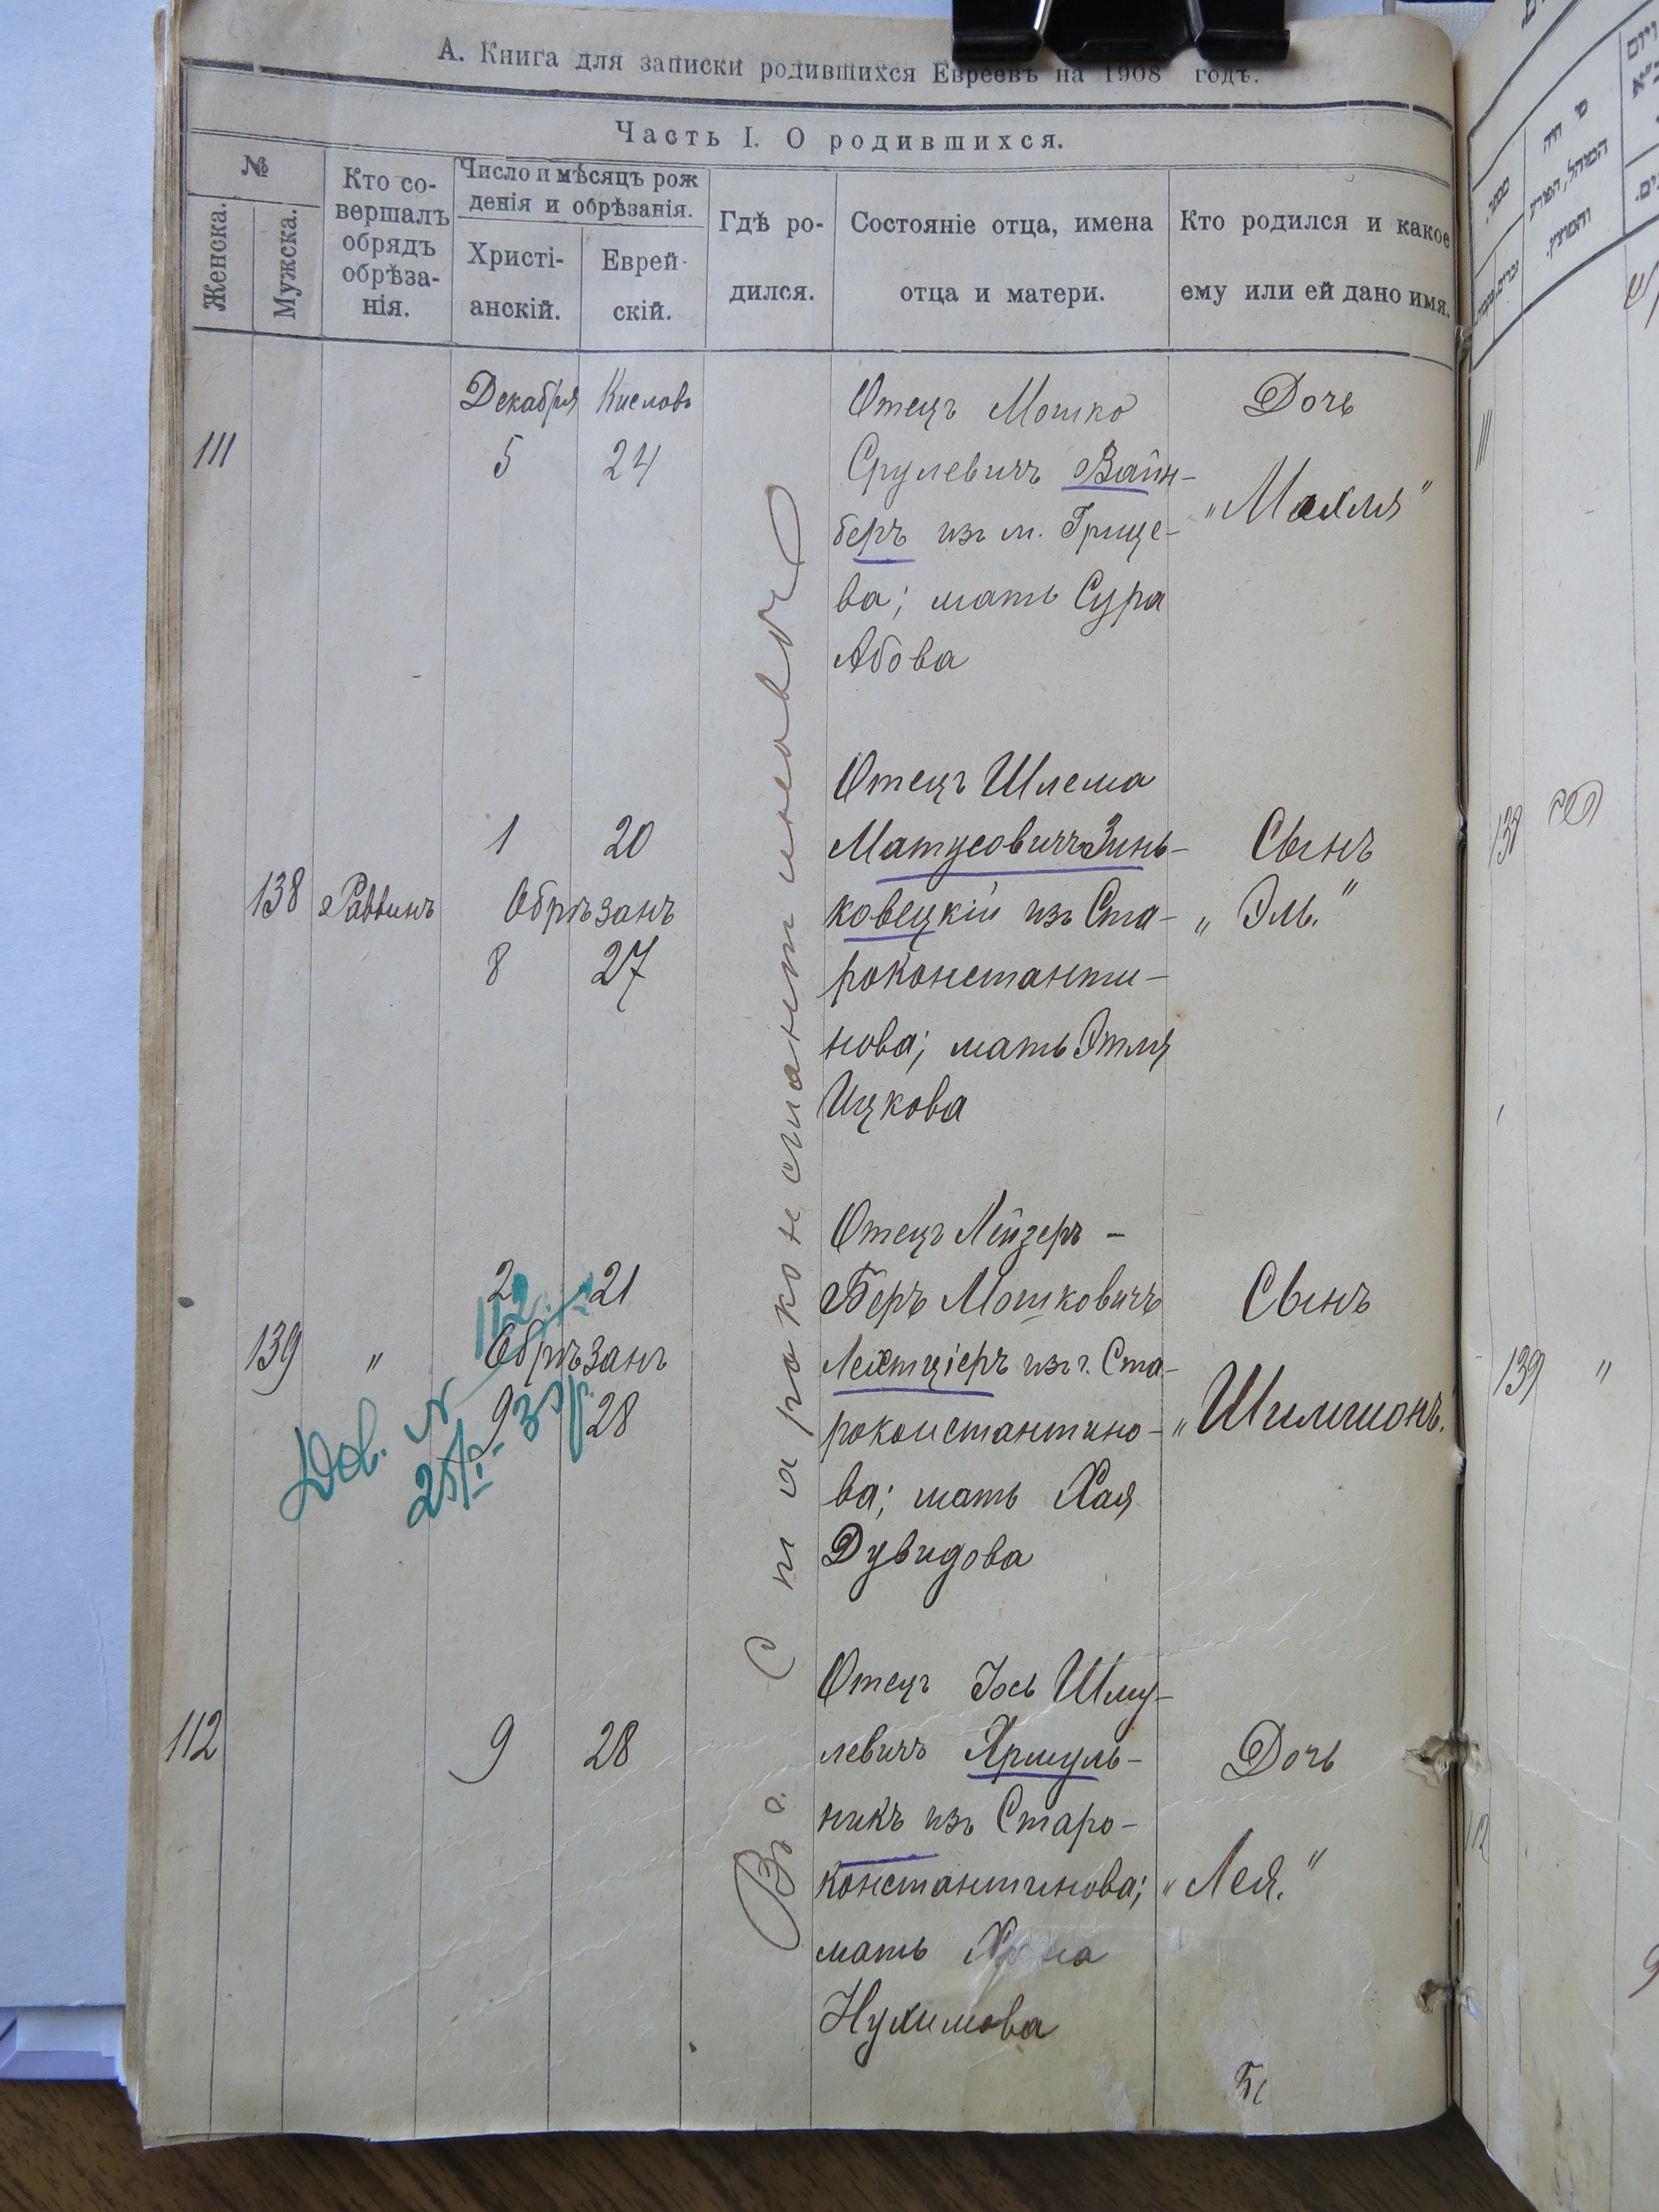 А. Книга для записки родившихся Евреевъ на 1908 годъ.
Часть I. О родившихся.
№
Женска.
Мужска.
Кто со-
вершалъ
обрядъ
обрѣза-
нія.
Число и мѣсяцъ рож
денія и обрѣзанія.
Христі-
анскій.
Еврей-
скій.
Гдѣ ро-
дился.
Состояніе отца, имена
отца и матери.
Кто родился и какое
ему или ей дано имя.
Въ г. Староконстантиновѣ
111
Декабря Кислова
5 24
Отецъ Мошко
Срулевичъ Вайн-
беръ изъ м. Грице-
ва; мать Сура
Абова
Дочь
„Махля"
138 Раввинъ
1 20
Обрѣзанъ
8 27
Отецъ Шлема
Матусовичъ Зинь-
ковецкій изъ Ста-
роконстанти-
нова; мать Этля
Ицкова
Сынъ
„Эль."
139 "
2 21
Обрѣзанъ
9 28
Отецъ Лейзеръ-
Беръ Мошковичъ
изъ г. Ста-
роконстантино-
ва; мать Хая
Дувидова
Сынъ
112
9 28
Отецъ Іось Шму-
левичъ Ярмуль-
никъ изъ Старо-
константинова;
мать
Нухимова
Дочь
„Лея."
111
138
139 "
112